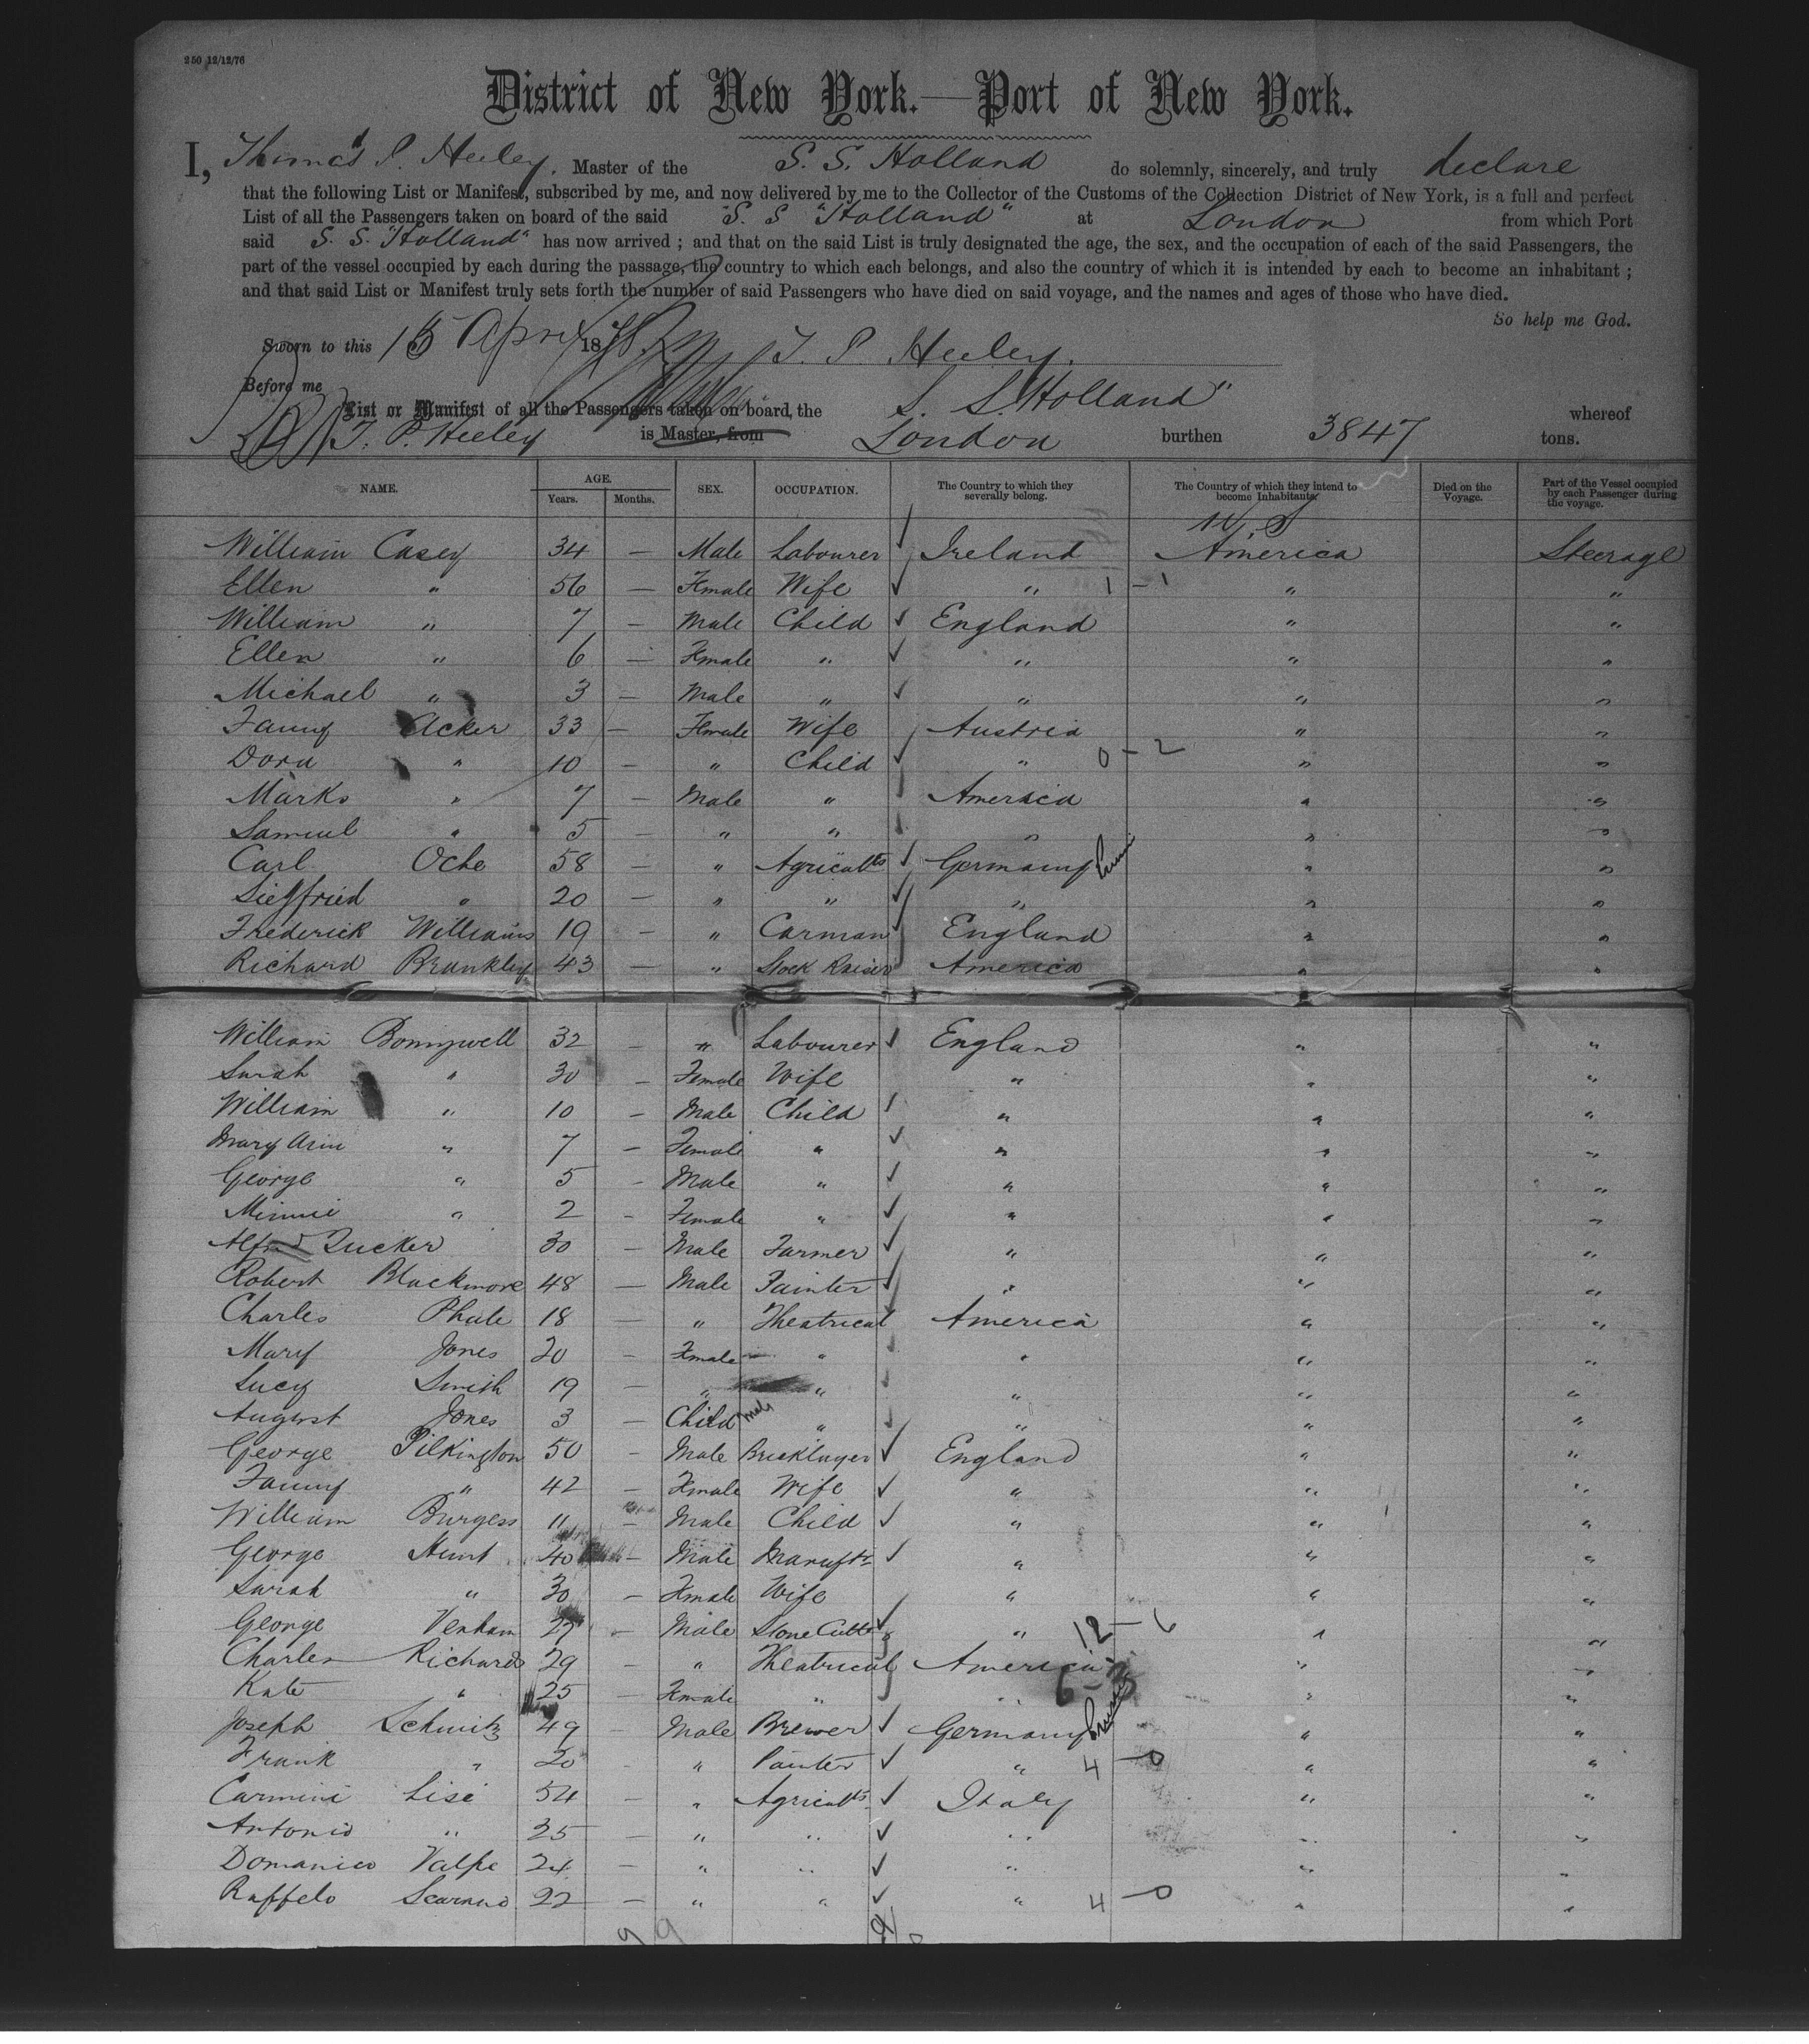 250 12/12/76
District of New York.—Port of New York.
I, Thomas P. Heeley, Master of the S. S. Holland do solemnly, sincerely, and truly declare
that the following List or Manifest, subscribed by me, and now delivered by me to the Collector of the Customs of the Collection District of New York, is a full and perfect
List of all the Passengers taken on board of the said S. S "Holland" at London from which Port
said S. S. "Holland" has now arrived ; and that on the said List is truly designated the age, the sex, and the occupation of each of the said Passengers, the
part of the vessel occupied by each during the passage, the country to which each belongs, and also the country of which it is intended by each to become an inhabitant ;
and that said List or Manifest truly sets forth the number of said Passengers who have died on said voyage, and the names and ages of those who have died.
So help me God.
Sworn to this 15 April 1878 T. P. Heeley.
Before me
List or Manifest of all the Passengers taken on board, the S. S. Holland" whereof
T. P. Heeley is Master, from London burthen 3847 tons.
NAME. AGE. Years. Months. SEX. OCCUPATION. The Country to which they severally belong. The Country of which they intend to become Inhabitants. Died on the Voyage. Part of the Vessel occupied by each Passenger during the voyage.
U, S
William Casey 34 — Male Labourer Ireland America Steerage
Ellen " 56 — Female Wife " 1 – 1 " "
William " 7 — Male Child England " "
Ellen " 6 — Female " " " "
Michael " 3 — Male " " " "
Fanny Acker 33 — Female Wife Austria " "
Dora " 10 — " Child " 0 – 2 " "
Marks " 7 — Male " America " "
Samuel " 5 — " " " " "
Carl Oche 58 — " Agricults Germany " "
Siegfried " 20 — " " " " "
Frederick Williams 19 — " Carman England " "
Richard Brunkley 43 — " Stock Raiser America " "
William Bonnywell 32 — " Labourer England " "
Sarah " 30 — Female Wife " " "
William " 10 — Male Child " " "
Mary Ann " 7 — Female " " " "
George " 5 — Male " " " "
Minnie " 2 — Female " " " "
Alfred Tucker 30 — Male Farmer " " "
Robert Blackmore 48 — Male Painter " " "
Charles Phale 18 — " Theatrical America " "
Mary Jones 20 — Female " " " "
Lucy Smith 19 — " " " " "
August Jones 3 — Child male " " " "
George Pilkington 50 — Male Bricklayer England " "
Fanny " 42 — Female Wife " " "
William Burgess 11 — Male Child " " "
George Hunt 40 — Male Manuftr " " "
Sarah " 30 — Female Wife " " "
George Venham 27 — Male Stone Cutter " 12 – 6 " "
Charles Richards 29 — " Theatrical America " "
Kate " 25 — Female " " 6 – 3 " "
Joseph Schmitz 49 — Male Brewer Germany " "
Frank " 20 — " Painter " 4 – 0 " "
Carmine Lisi 54 — " Agricults Italy " "
Antonio " 25 — " " " " "
Domanico Valpe 24 — " " " " "
Raffelo Scarano 22 — " " " 4 – 0 " "